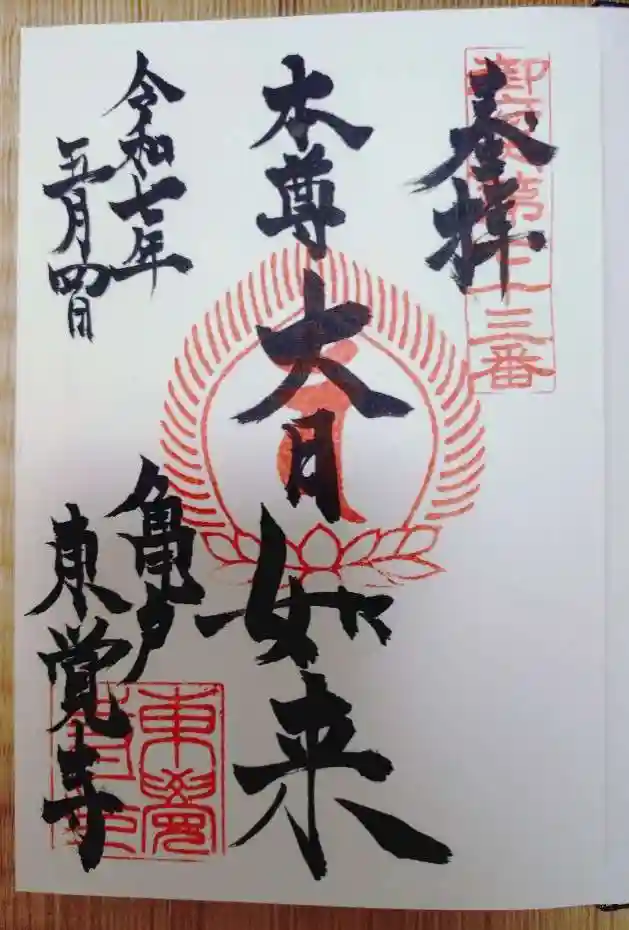 奉拝
第七十三番
本尊 大日如来
令和七年
五月四日
亀戸
東覚寺